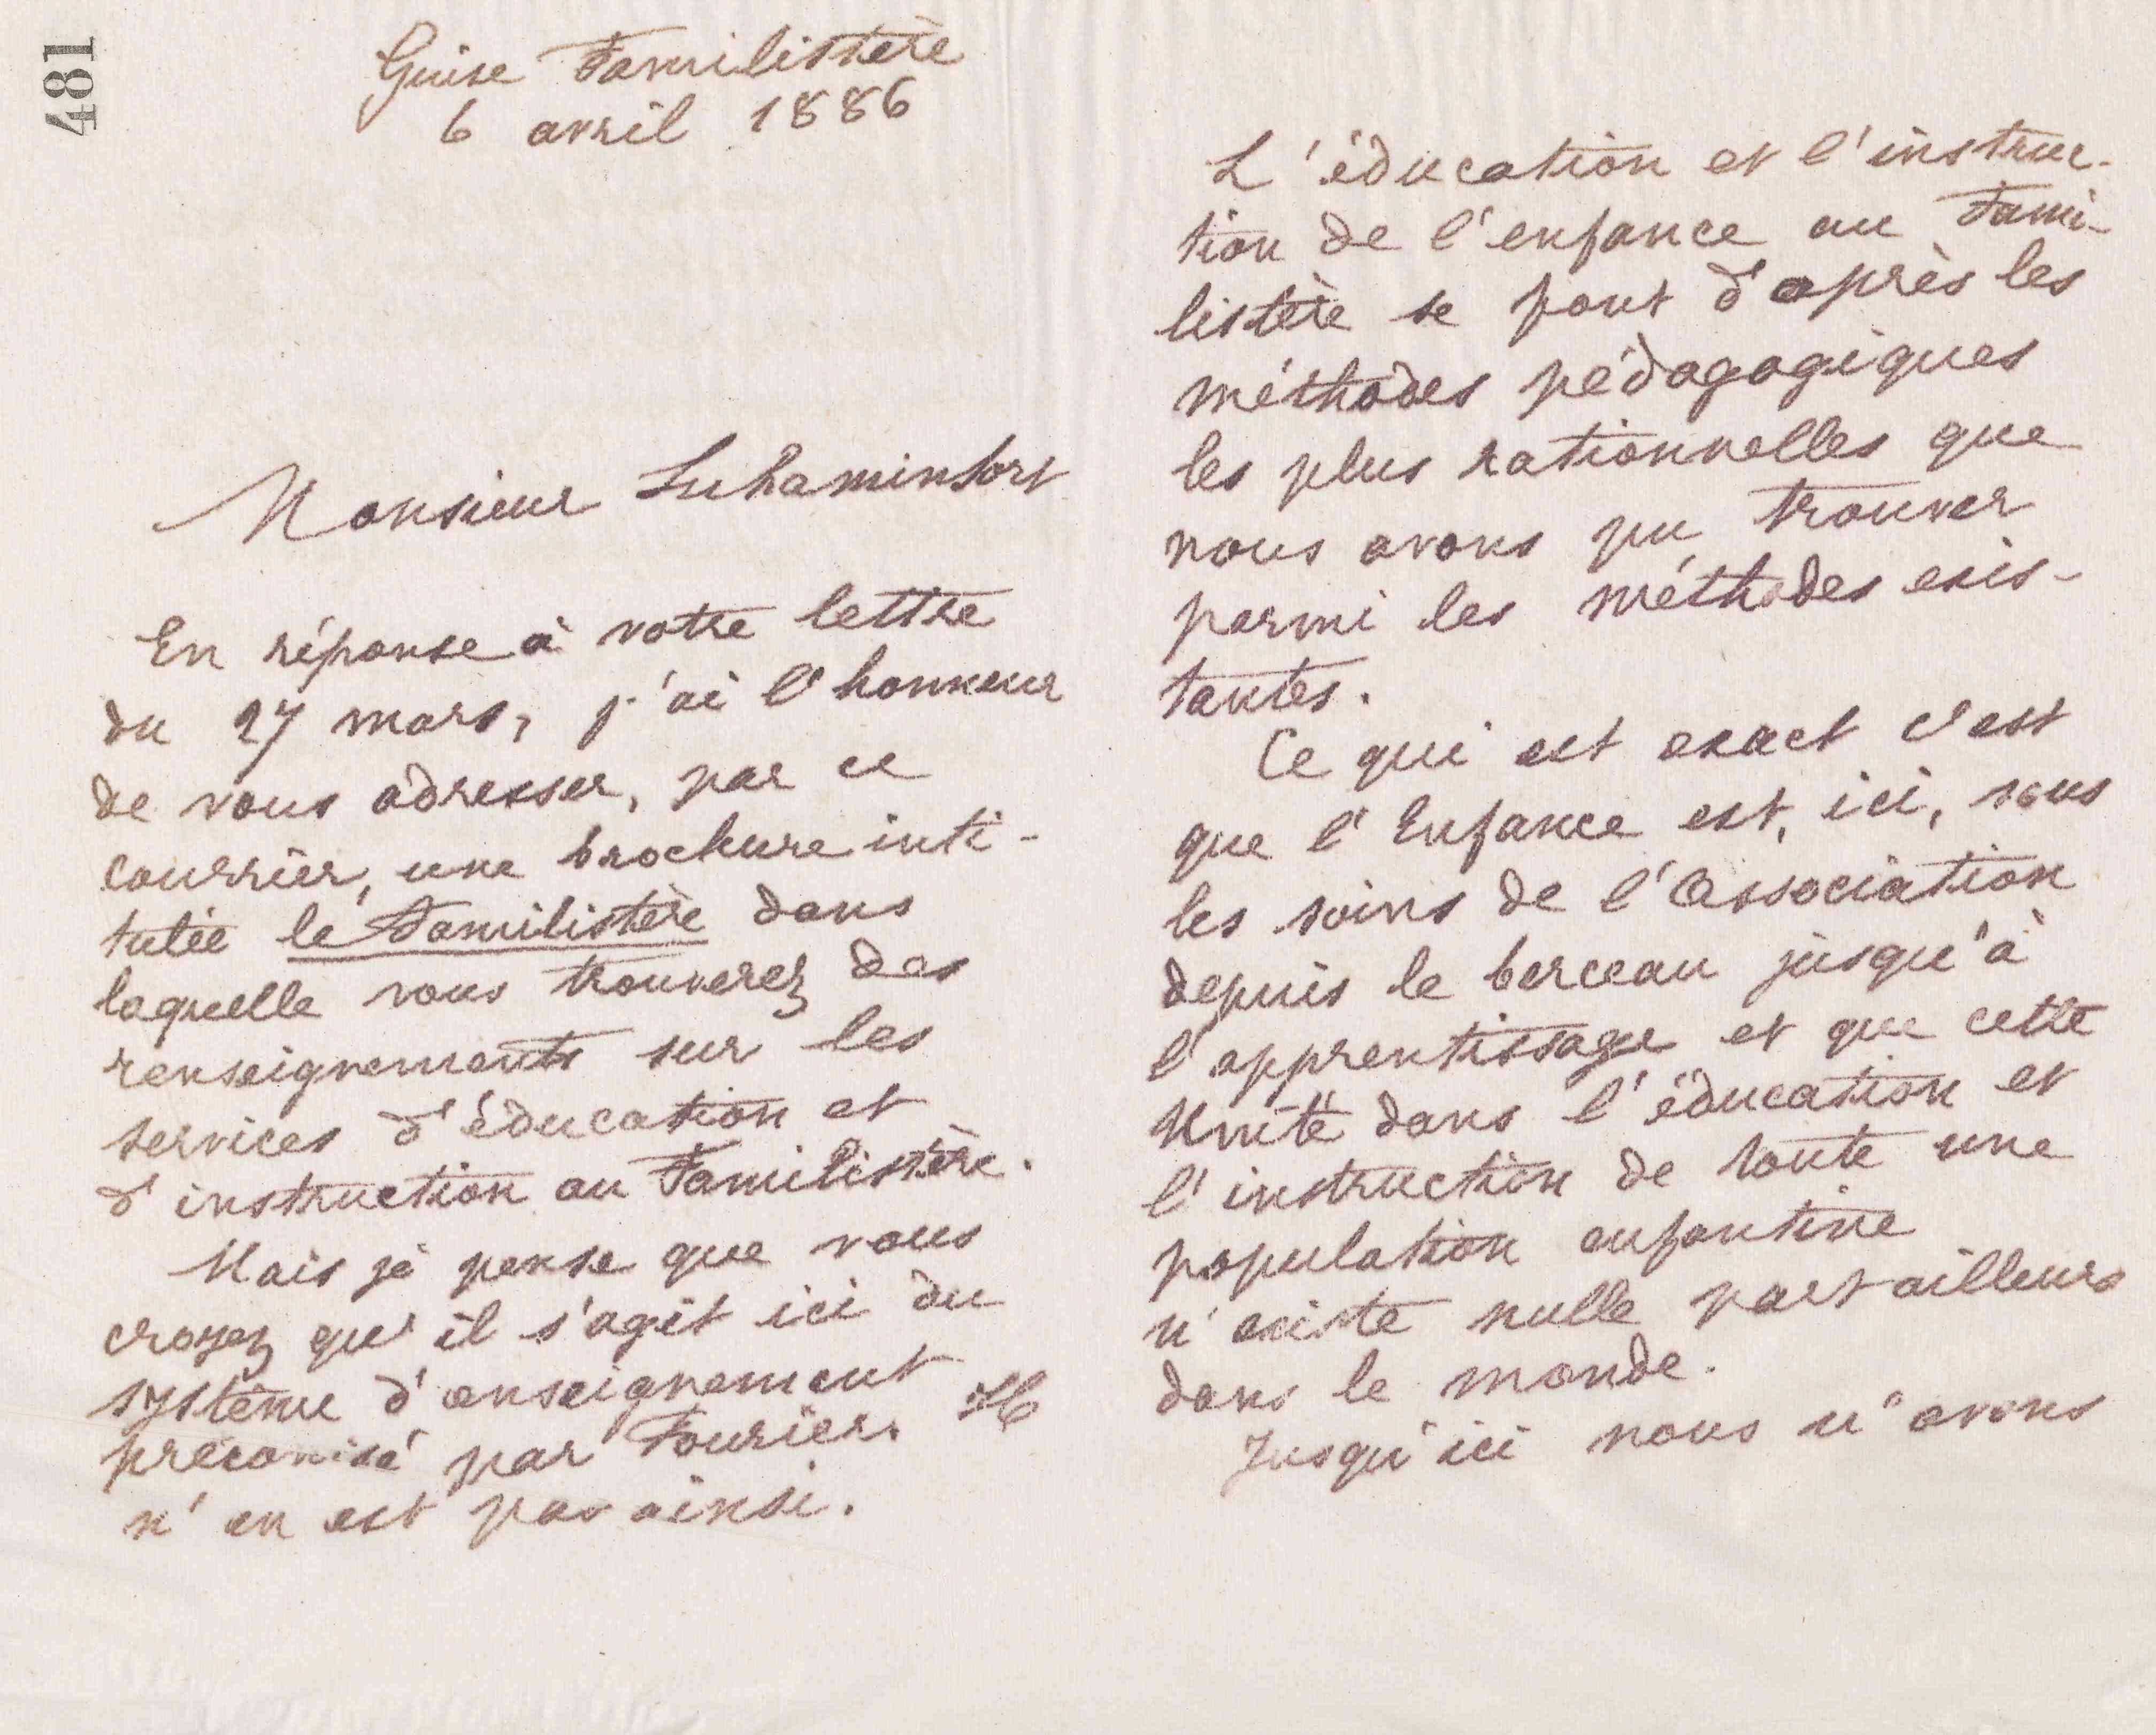 481
Guise Familistère
6 avril 1886
Monsieur
En réponse à votre lettre
du 27 mars, j'ai l'honneur
de vous adresser, par ce
courrier, une brochure inti-
tulée le Familistère dans
laquelle vous trouverez des
renseignements sur les
services d'éducation et
d'instruction au Familistère.
Mais je pense que vous
croyez qu'il s'agit ici du
système d'enseignement
préconisé par Fourier. Il
n'en est pas ainsi.
L'éducation et l'instruc-
tion de l'enfance au Fami-
listère se font d'après les
méthodes pédagogiques
les plus rationnelles que
nous avons pu trouver
parmi les méthodes exis-
tantes.
Ce qui est exact c'est
que l'Enfance est, ici, sous
les soins de l'Association
depuis le berceau jusqu'à
l'apprentissage et que cette
unité dans l'éducation et
l'instruction de toute une
population enfantine
n'existe nulle part ailleurs
dans le monde.
Jusqu'ici nous n'avons